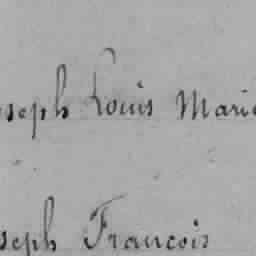 oseph Louis Marie
seph Francois